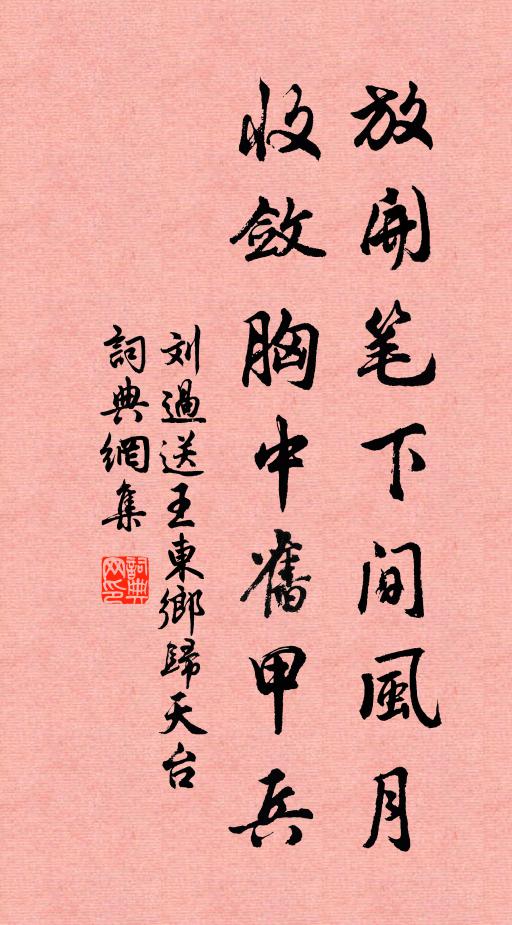 放開笔下間風月
收斂胸中舊甲兵
刘過送王東鄉歸天台
詞典網集
詞典网印